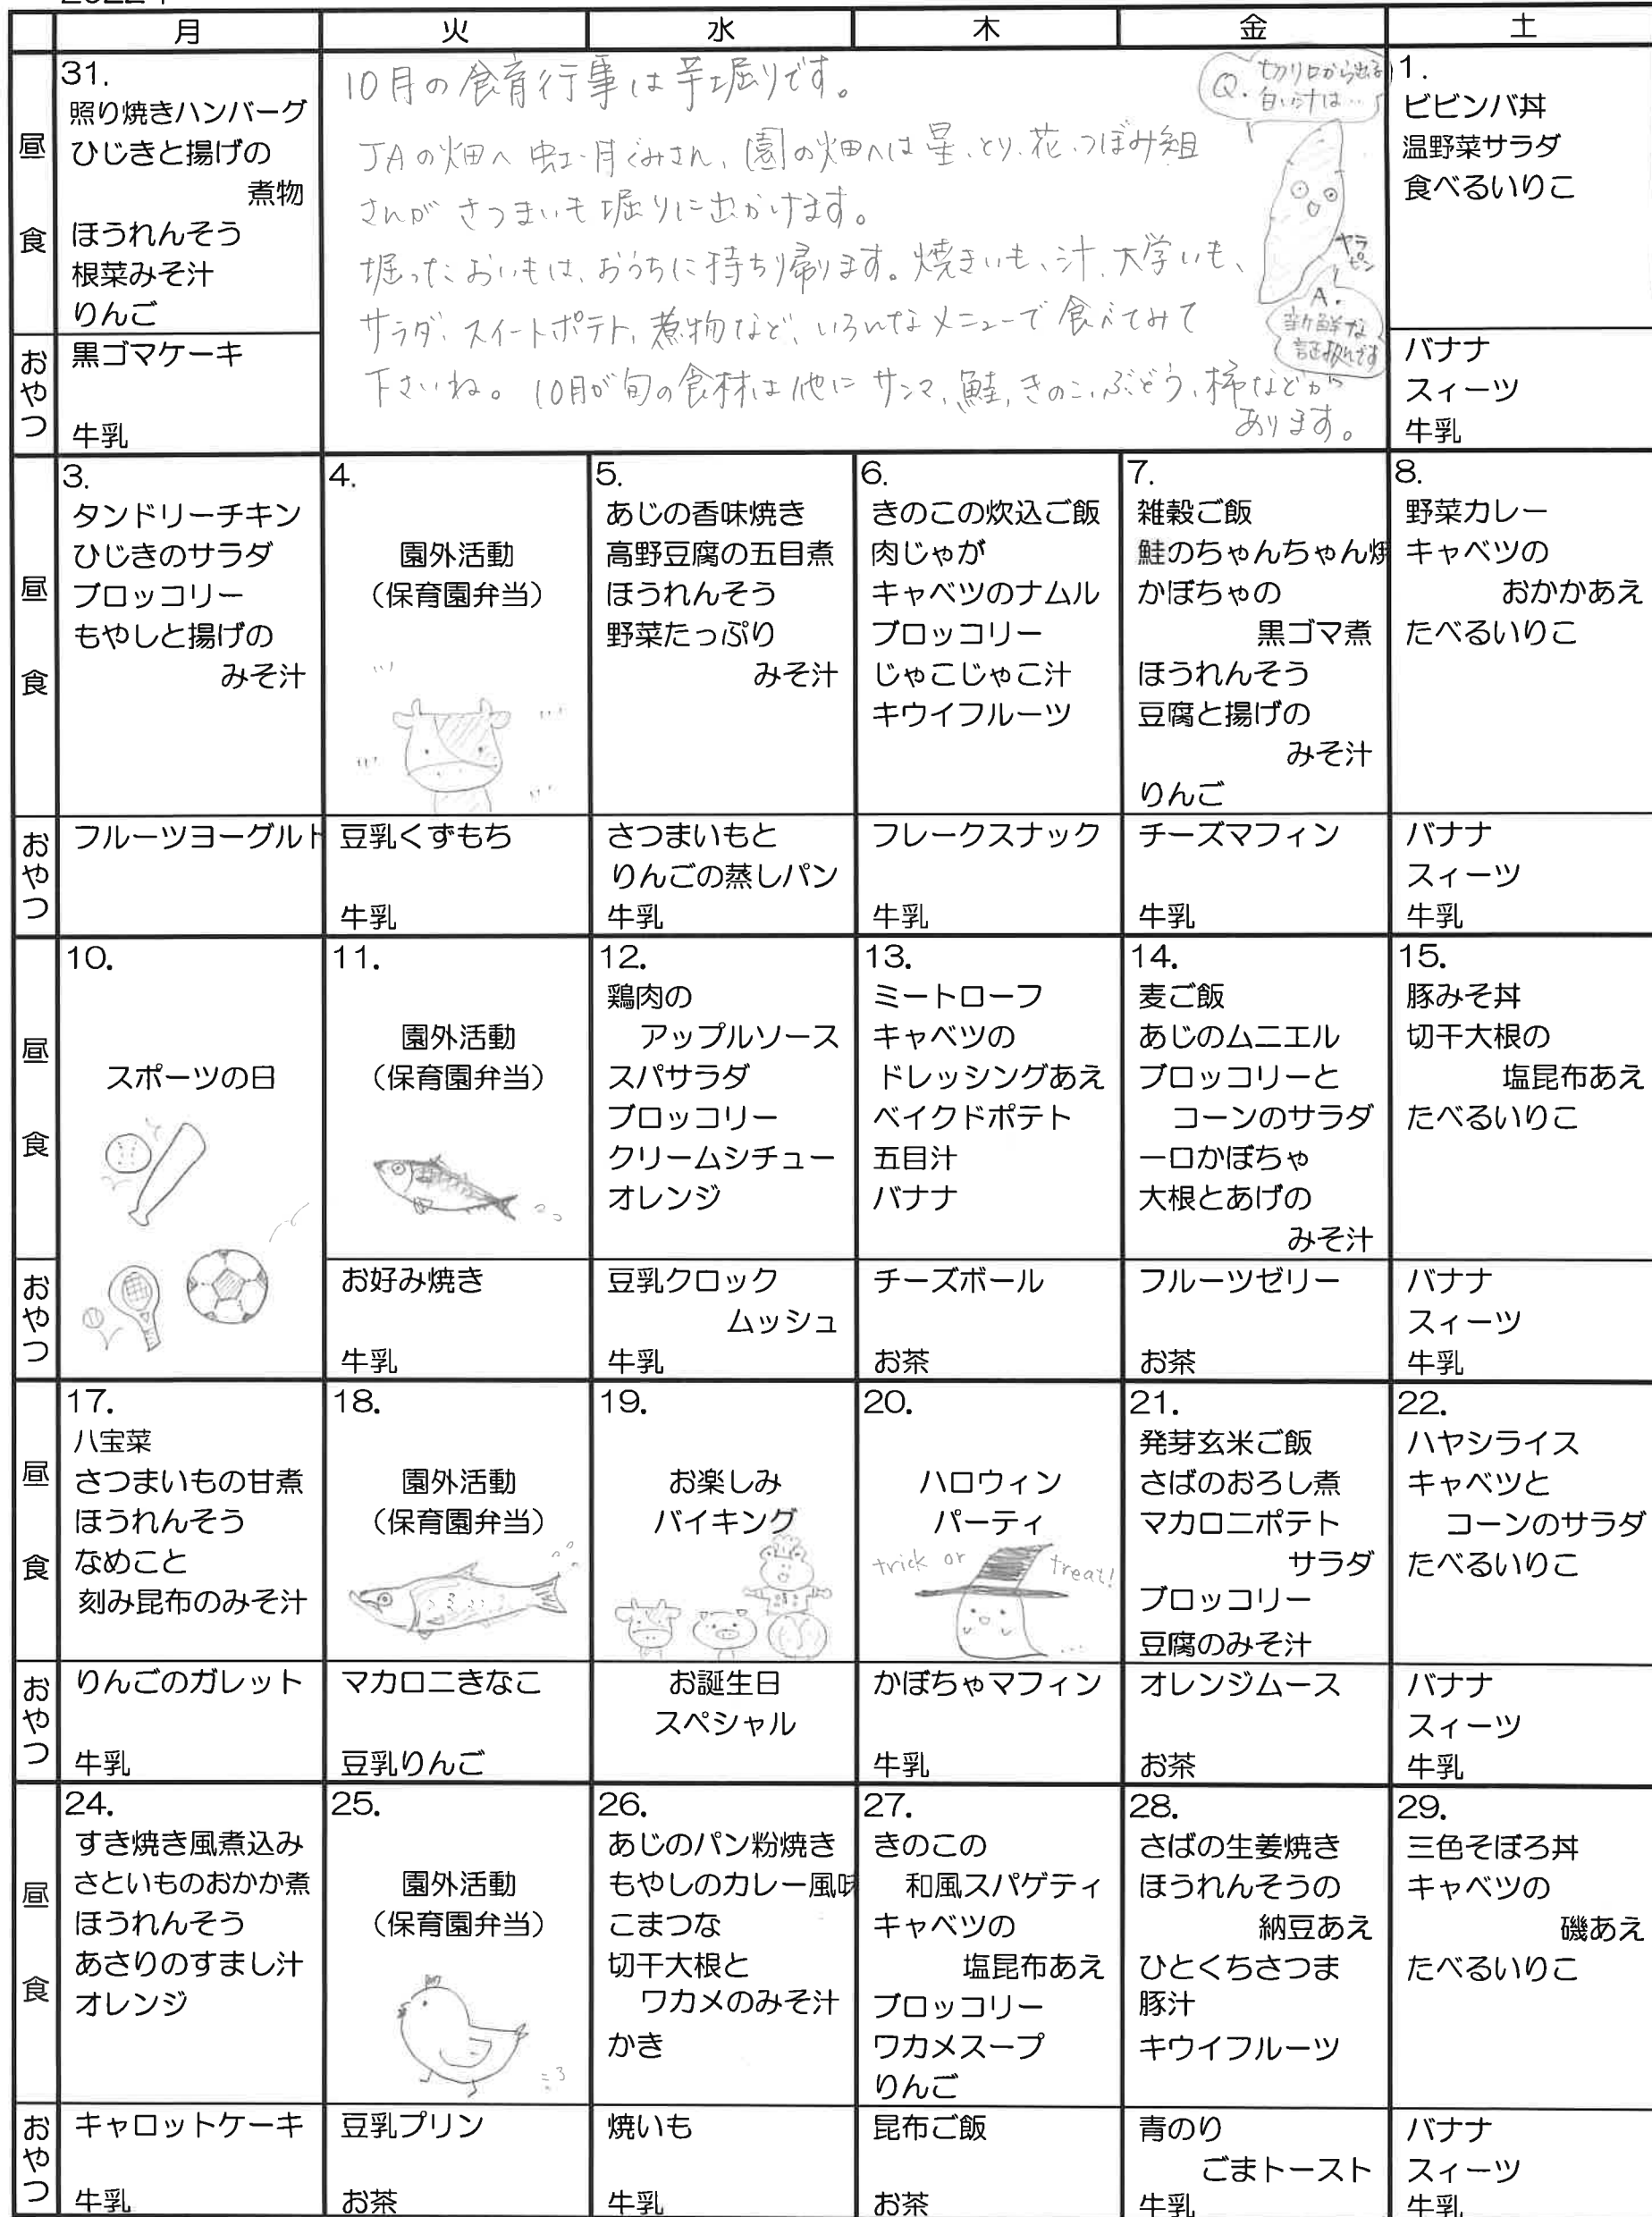 月 火 水 木 金 土
昼食
31.
照り焼きハンバーグ
ひじきと揚げの
煮物
ほうれんそう
根菜みそ汁
りんご
10月の食育行事は芋堀りです。
JAの畑へ虹・月ぐみさん、園の畑へは星、とり、花、つぼみ組
さんが さつまいも堀りに出かけます。
堀ったおいもは、おうちに持ち帰ります。焼きいも、汁、大学いも、
サラダ、スイートポテト、煮物など、いろんなメニューで食べてみて
下さいね。10月が旬の食材は他に サンマ、鮭、きのこ、ぶどう、柿などが
あります。
Q. 切り口から出る
白い汁は…
ヤラピン
A.
新鮮な
証拠です
1.
ビビンバ丼
温野菜サラダ
食べるいりこ
おやつ
黒ゴマケーキ
牛乳
バナナ
スィーツ
牛乳
昼食
3.
タンドリーチキン
ひじきのサラダ
ブロッコリー
もやしと揚げの
みそ汁
4.
園外活動
(保育園弁当)
5.
あじの香味焼き
高野豆腐の五目煮
ほうれんそう
野菜たっぷり
みそ汁
6.
きのこの炊込ご飯
肉じゃが
キャベツのナムル
ブロッコリー
じゃこじゃこ汁
キウイフルーツ
7.
雑穀ご飯
鮭のちゃんちゃん焼
かぼちゃの
黒ゴマ煮
ほうれんそう
豆腐と揚げの
みそ汁
りんご
8.
野菜カレー
キャベツの
おかかあえ
たべるいりこ
おやつ
フルーツヨーグルト
豆乳くずもち
牛乳
さつまいもと
りんごの蒸しパン
牛乳
フレークスナック
牛乳
チーズマフィン
牛乳
バナナ
スィーツ
牛乳
昼食
10.
スポーツの日
11.
園外活動
(保育園弁当)
12.
鶏肉の
アップルソース
スパサラダ
ブロッコリー
クリームシチュー
オレンジ
13.
ミートローフ
キャベツの
ドレッシングあえ
ベイクドポテト
五目汁
バナナ
14.
麦ご飯
あじのムニエル
ブロッコリーと
コーンのサラダ
一口かぼちゃ
大根とあげの
みそ汁
15.
豚みそ丼
切干大根の
塩昆布あえ
たべるいりこ
おやつ
お好み焼き
牛乳
豆乳クロック
ムッシュ
牛乳
チーズボール
お茶
フルーツゼリー
お茶
バナナ
スィーツ
牛乳
昼食
17.
八宝菜
さつまいもの甘煮
ほうれんそう
なめこと
刻み昆布のみそ汁
18.
園外活動
(保育園弁当)
19.
お楽しみ
バイキング
20.
ハロウィン
パーティ
trick or treat!
21.
発芽玄米ご飯
さばのおろし煮
マカロニポテト
サラダ
ブロッコリー
豆腐のみそ汁
22.
ハヤシライス
キャベツと
コーンのサラダ
たべるいりこ
おやつ
りんごのガレット
牛乳
マカロニきなこ
豆乳りんご
お誕生日
スペシャル
かぼちゃマフィン
牛乳
オレンジムース
お茶
バナナ
スィーツ
牛乳
昼食
24.
すき焼き風煮込み
さといものおかか煮
ほうれんそう
あさりのすまし汁
オレンジ
25.
園外活動
(保育園弁当)
26.
あじのパン粉焼き
もやしのカレー風味
こまつな
切干大根と
ワカメのみそ汁
かき
27.
きのこの
和風スパゲティ
キャベツの
塩昆布あえ
ブロッコリー
ワカメスープ
りんご
28.
さばの生姜焼き
ほうれんそうの
納豆あえ
ひとくちさつま
豚汁
キウイフルーツ
29.
三色そぼろ丼
キャベツの
磯あえ
たべるいりこ
おやつ
キャロットケーキ
牛乳
豆乳プリン
お茶
焼いも
牛乳
昆布ご飯
お茶
青のり
ごまトースト
牛乳
バナナ
スィーツ
牛乳